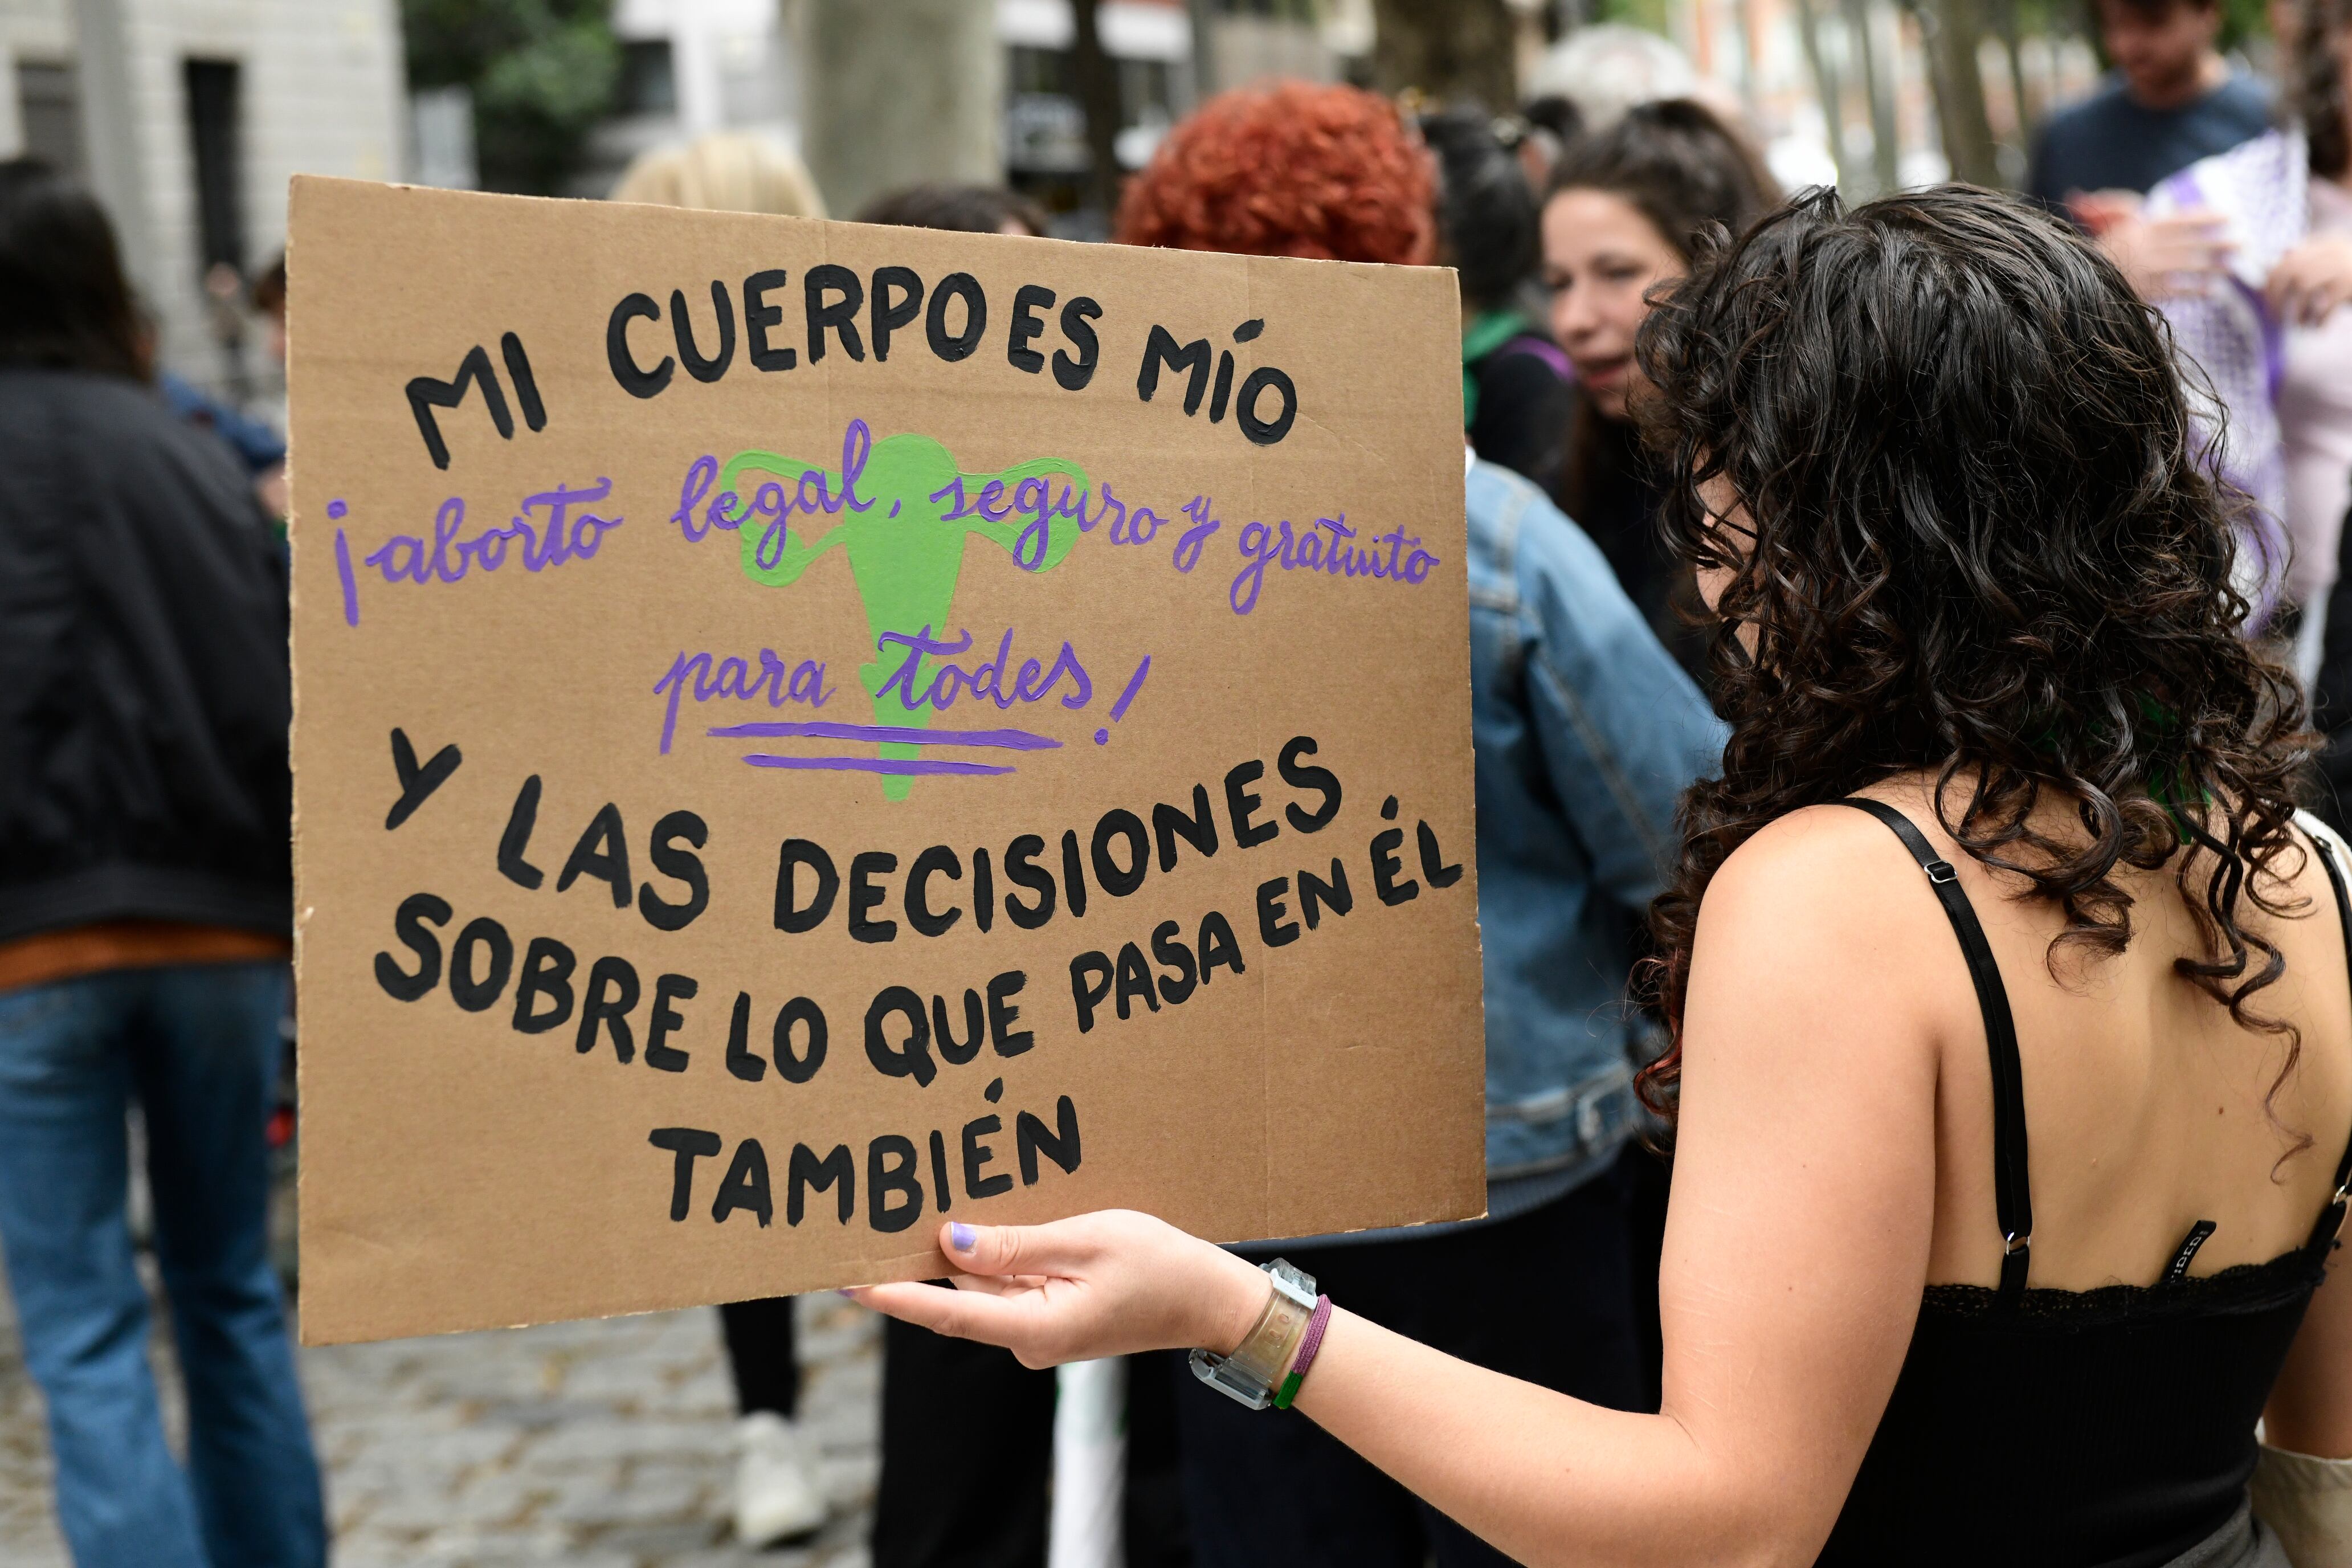 MI CUERPO ES MÍO
¡aborto legal, seguro y gratuito
para todes!
Y LAS DECISIONES
SOBRE LO QUE PASA EN ÉL
TAMBIÉN